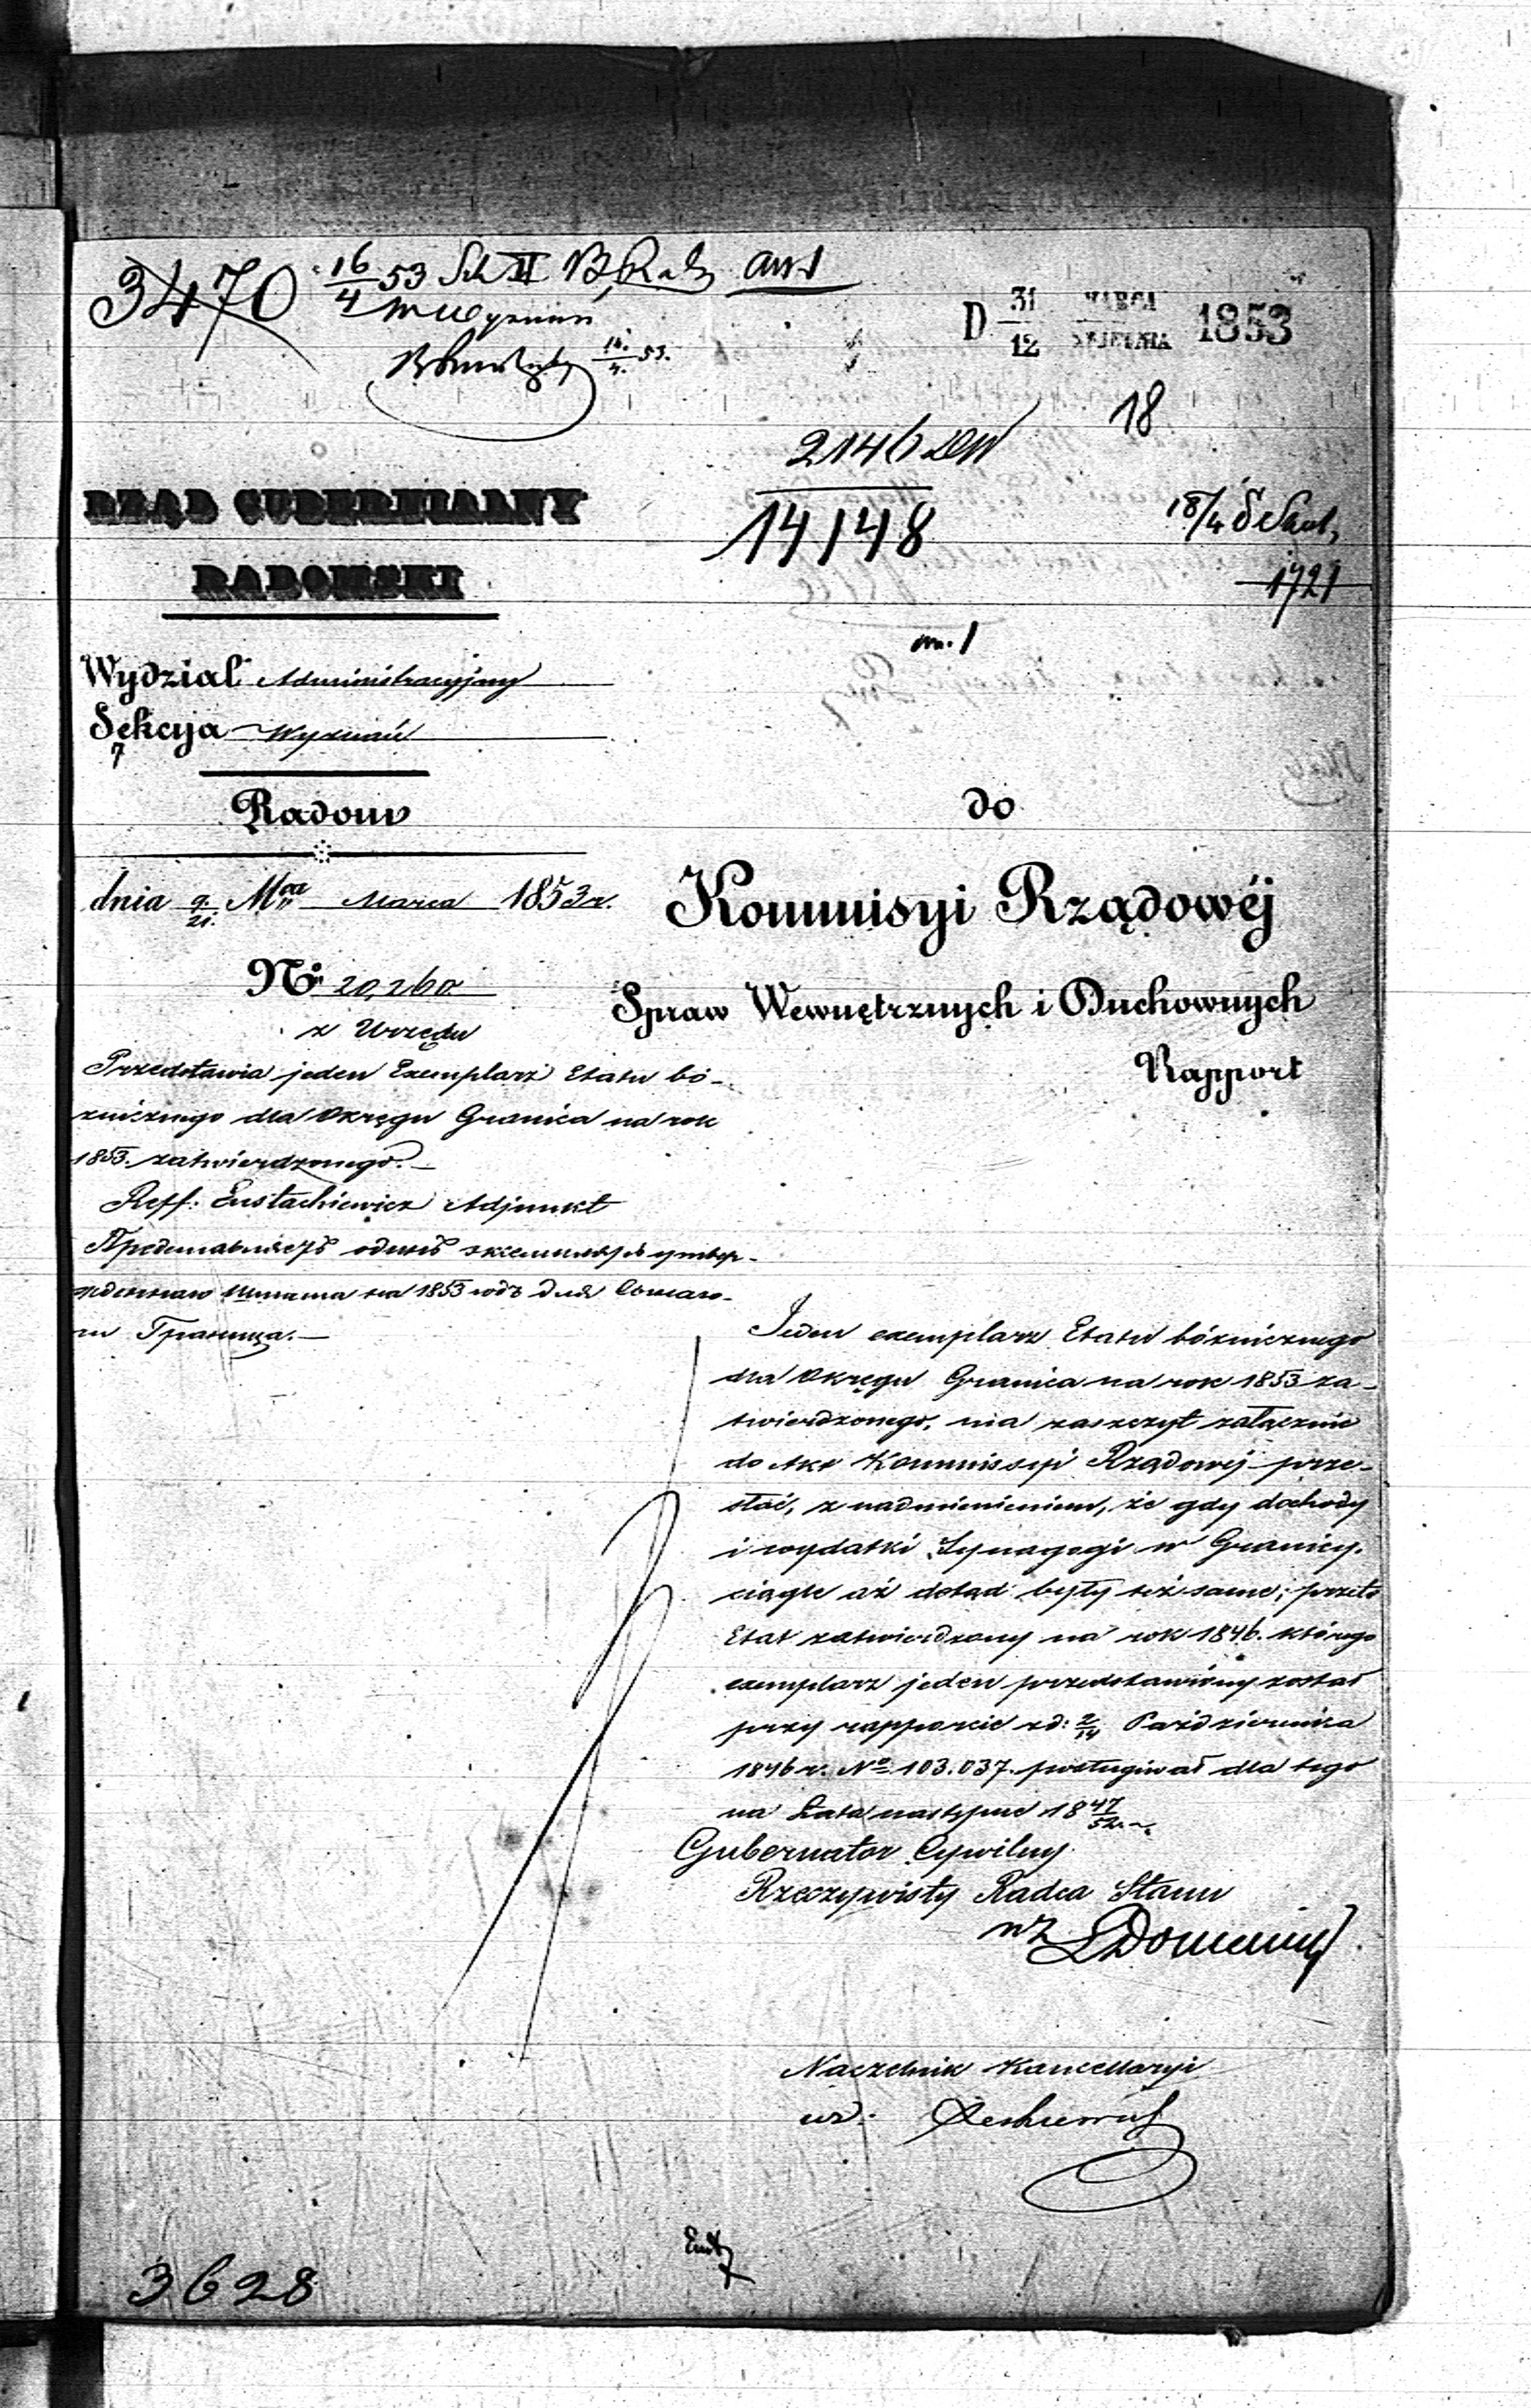 3470
16/4 53
D 31/12 MARCA/KWIETNIA 1853
18
2146
14148
18/4
1721
RZĄD GUBERNIALNY
RADOMSKI
Wydział Administracyjny
Sekcya Wyznań
Radom
dnia 9/21 Marca 1853 r.
No 20,260.
z Urzędu
Przedstawia jeden Exemplarz Etatu bó-
żniczego dla Okręgu Granica na rok
1853. zatwierdzonego.
Reff: Eustachiewicz Adjunkt
на 1853 годъ для
Граница.
do
Kommisyi Rządowéj
Spraw Wewnętrznych i Duchownych
Rapport
Jeden exemplarz Etatu bóżniczego
dla Okręgu Granica na rok 1853 za-
twierdzonego, ma zaszczyt załącznie
do Akt Kommissyi Rządowej prze-
słać, z nadmienieniem, że gdy dochody
i wydatki Synagogi w Granicy.
ciągle aż dotąd były też same; przeto
Etat zatwierdzony na rok 1846. którego
exemplarz jeden przedstawiony został
przy rapporcie zd: 2/14 Października
1846 r. No 103.037. posługiwał dla tego
na Lata następne 18 47/52.
Gubernator Cywilny
Rzeczywisty Radca Stanu
wz
Naczelnik Kancellaryi
3628